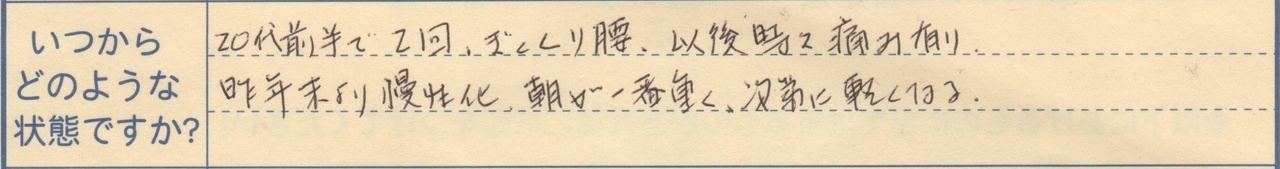 いつから
どのような
状態ですか?
20代前半で2回、ぎっくり腰、以後時々痛み有り.
昨年末より慢性化、朝が一番重く、次第に軽くなる.